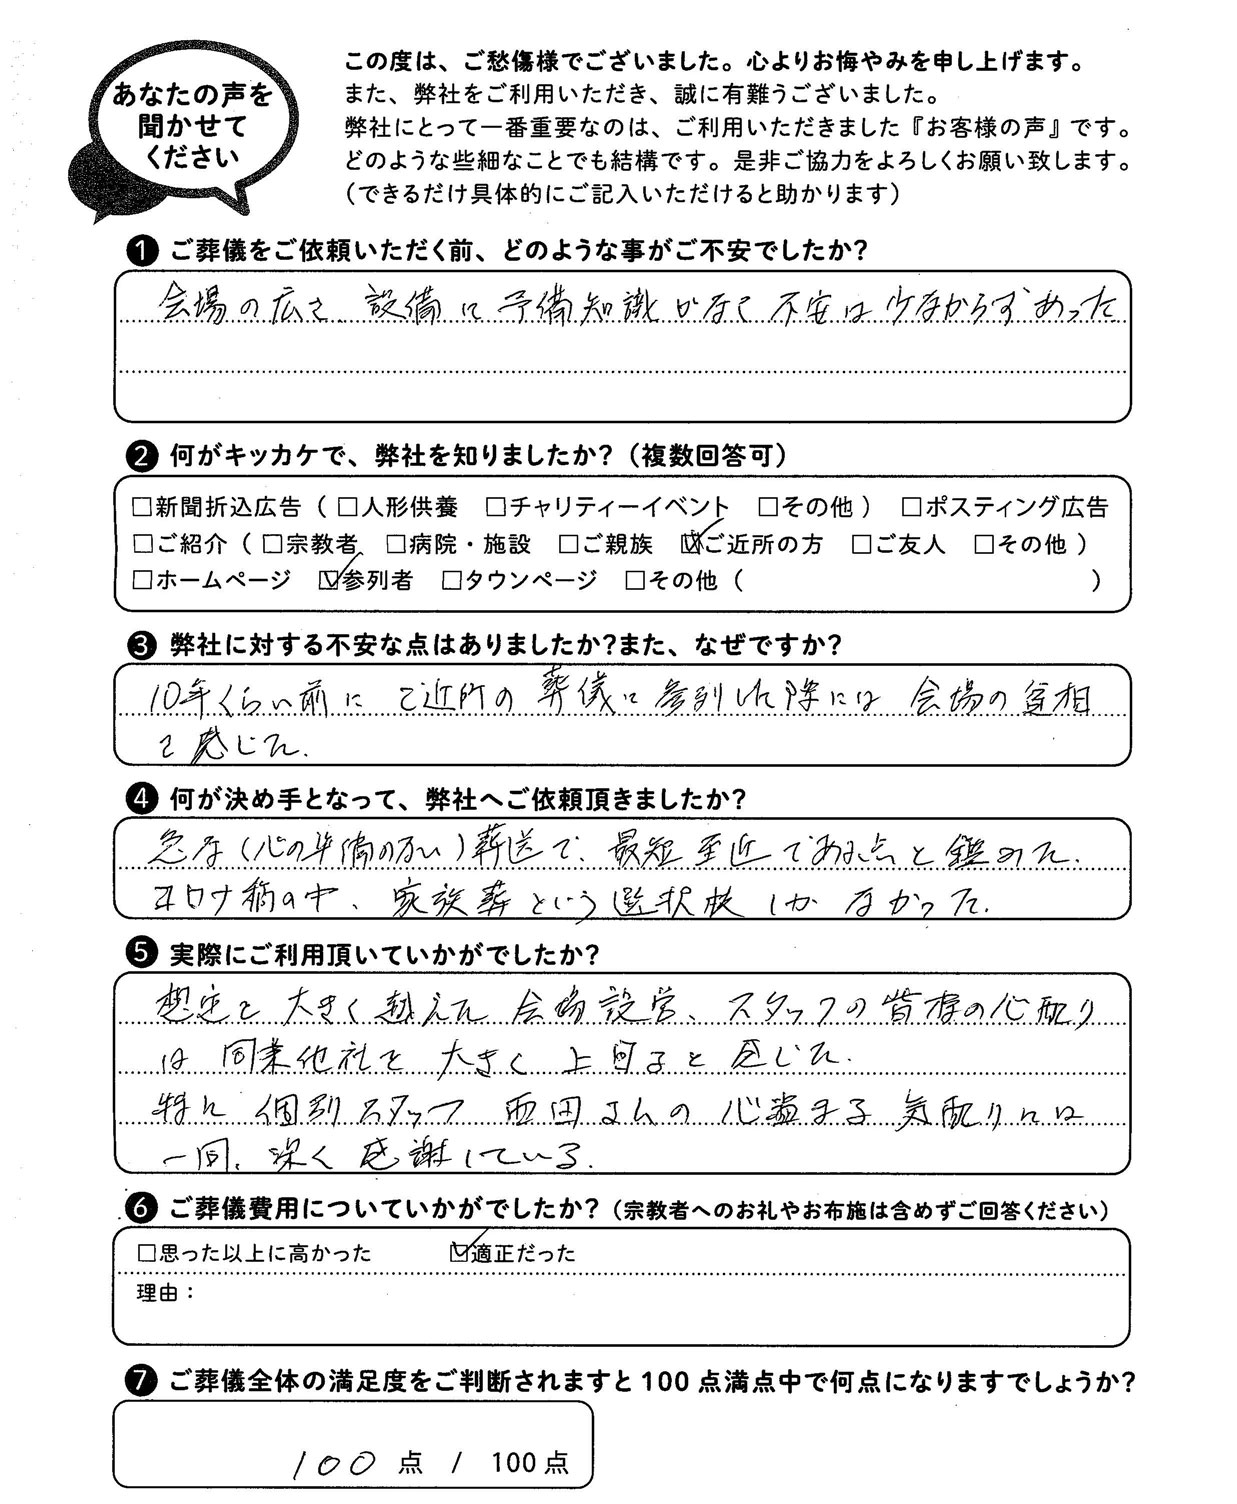 あなたの声を
聞かせて
ください
この度は、ご愁傷様でございました。心よりお悔やみを申し上げます。
また、弊社をご利用いただき、誠に有難うございました。
弊社にとって一番重要なのは、ご利用いただきました『お客様の声』です。
どのような些細なことでも結構です。是非ご協力をよろしくお願い致します。
（できるだけ具体的にご記入いただけると助かります）
❶ ご葬儀をご依頼いただく前、どのような事がご不安でしたか？
会場の広さ、設備に予備知識がなく不安は少なからずあった
❷ 何がキッカケで、弊社を知りましたか？（複数回答可）
□新聞折込広告（□人形供養 □チャリティーイベント □その他） □ポスティング広告
□ご紹介（□宗教者 □病院・施設 □ご親族 ☑ご近所の方 □ご友人 □その他）
□ホームページ ☑参列者 □タウンページ □その他（ ）
❸ 弊社に対する不安な点はありましたか？また、なぜですか？
10年くらい前にご近所の葬儀に参列した際には会場の貧相
を感じた.
❹ 何が決め手となって、弊社へご依頼頂きましたか？
急な（心の準備のない）葬送で、最短至近である点を鑑みた.
コロナ禍の中、家族葬という選択枝しかなかった.
❺ 実際にご利用頂いていかがでしたか？
想定を大きく越えた会場設営、スタッフの皆様の心配り
は同業他社を大きく上回ると感じた.
特に個別スタッフ西田さんの心温まる気配りには
一同、深く感謝している.
❻ ご葬儀費用についていかがでしたか？（宗教者へのお礼やお布施は含めずご回答ください）
□思った以上に高かった ☑適正だった
理由：
❼ ご葬儀全体の満足度をご判断されますと100点満点中で何点になりますでしょうか？
100 点 / 100点